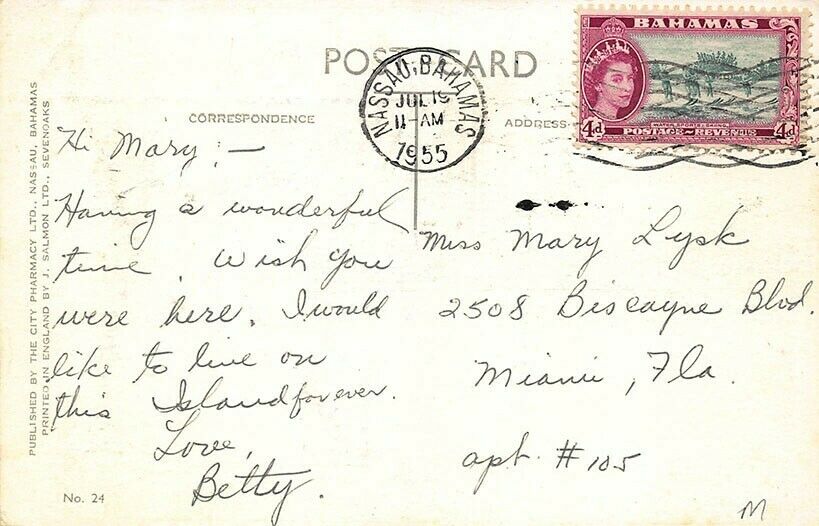 POST CARD
CORRESPONDENCE
ADDRESS
NASSAU, BAHAMAS
JUL 19
11-AM
1955
BAHAMAS
4d
POSTAGE~REVENUE
4d
Hi Mary:—
Having a wonderful
time. Wish you
were here. I would
like to live on
this Island forever.
Love,
Betty.
Miss Mary Lysk
2508 Biscayne Blvd.
Miami, Fla.
apt. #105
PUBLISHED BY THE CITY PHARMACY LTD., NASSAU, BAHAMAS
PRINTED IN ENGLAND BY J. SALMON LTD., SEVENOAKS
No. 24
M